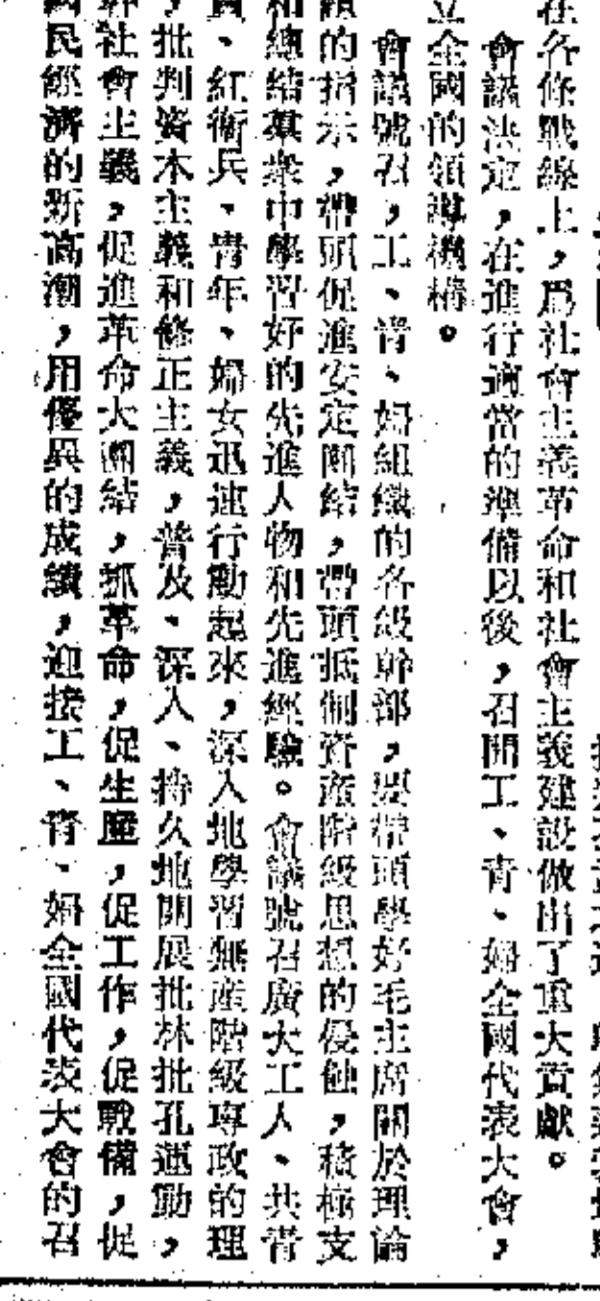 在各條戰線上，爲社會主義革命和社會主義建設做出了重大貢獻。
會議決定，在進行適當的準備以後，召開工、青、婦全國代表大會，
立全國的領導機構。
會議號召，工、青、婦組織的各級幹部，要帶頭學好毛主席關於理論
的指示，帶頭促進安定團結，帶頭抵制資產階級思想的侵蝕，積極支
和總結羣衆中學習好的先進人物和先進經驗。會議號召廣大工人、共青
、紅衛兵、青年、婦女迅速行動起來，深入地學習無產階級專政的理
，批判資本主義和修正主義，普及、深入、持久地開展批林批孔運動，
社會主義，促進革命大團結，抓革命，促生產，促工作，促戰備，促
國民經濟的新高潮，用優異的成績，迎接工、青、婦全國代表大會的召